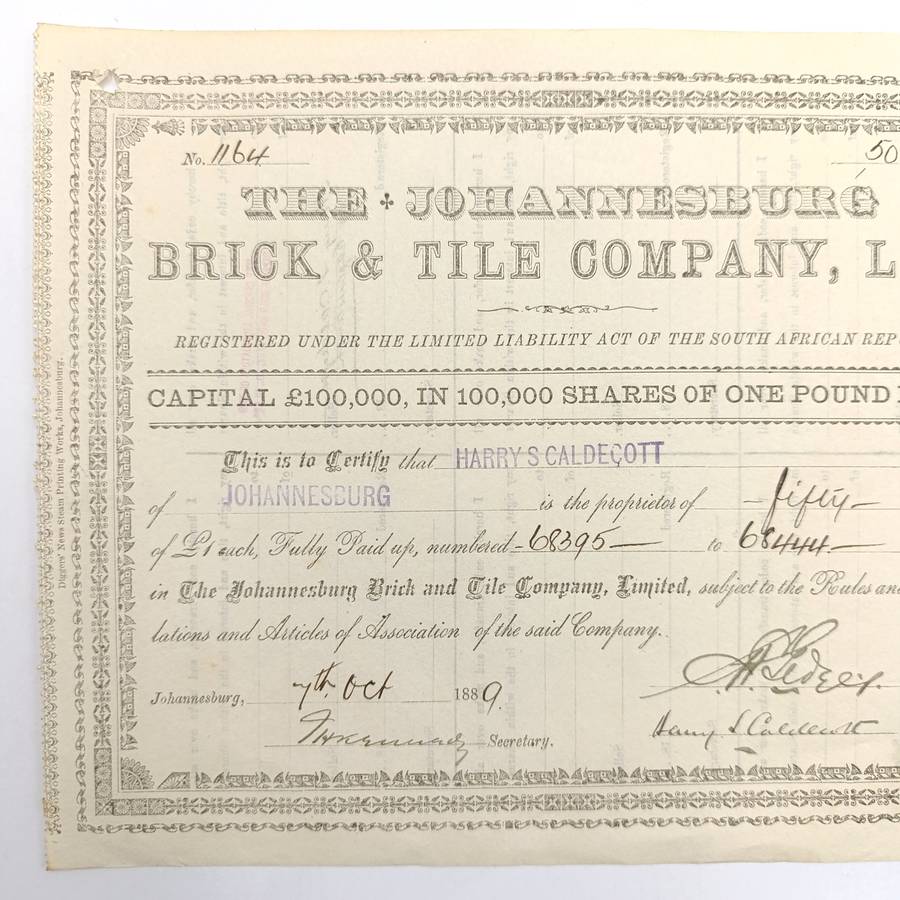 No. 1164
50
THE JOHANNESBURG
BRICK & TILE COMPANY, L
REGISTERED UNDER THE LIMITED LIABILITY ACT OF THE SOUTH AFRICAN REP
CAPITAL £100,000, IN 100,000 SHARES OF ONE POUND
This is to Certify that HARRY S CALDECOTT
of JOHANNESBURG is the proprietor of — fifty —
of £1 each, Fully Paid up, numbered — 68395 — to 68444 —
in The Johannesburg Brick and Tile Company, Limited, subject to the Rules and
lations and Articles of Association of the said Company.
Johannesburg, 7th Oct 1889.
Harry S Caldecott
Secretary.
Diggers' News Steam Printing Works, Johannesburg.